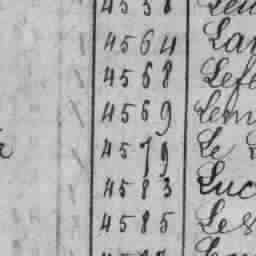 4558
4564 Lan
4568 Lefe
4569 Lem
4579 Le
4583 Luc
4585 Les